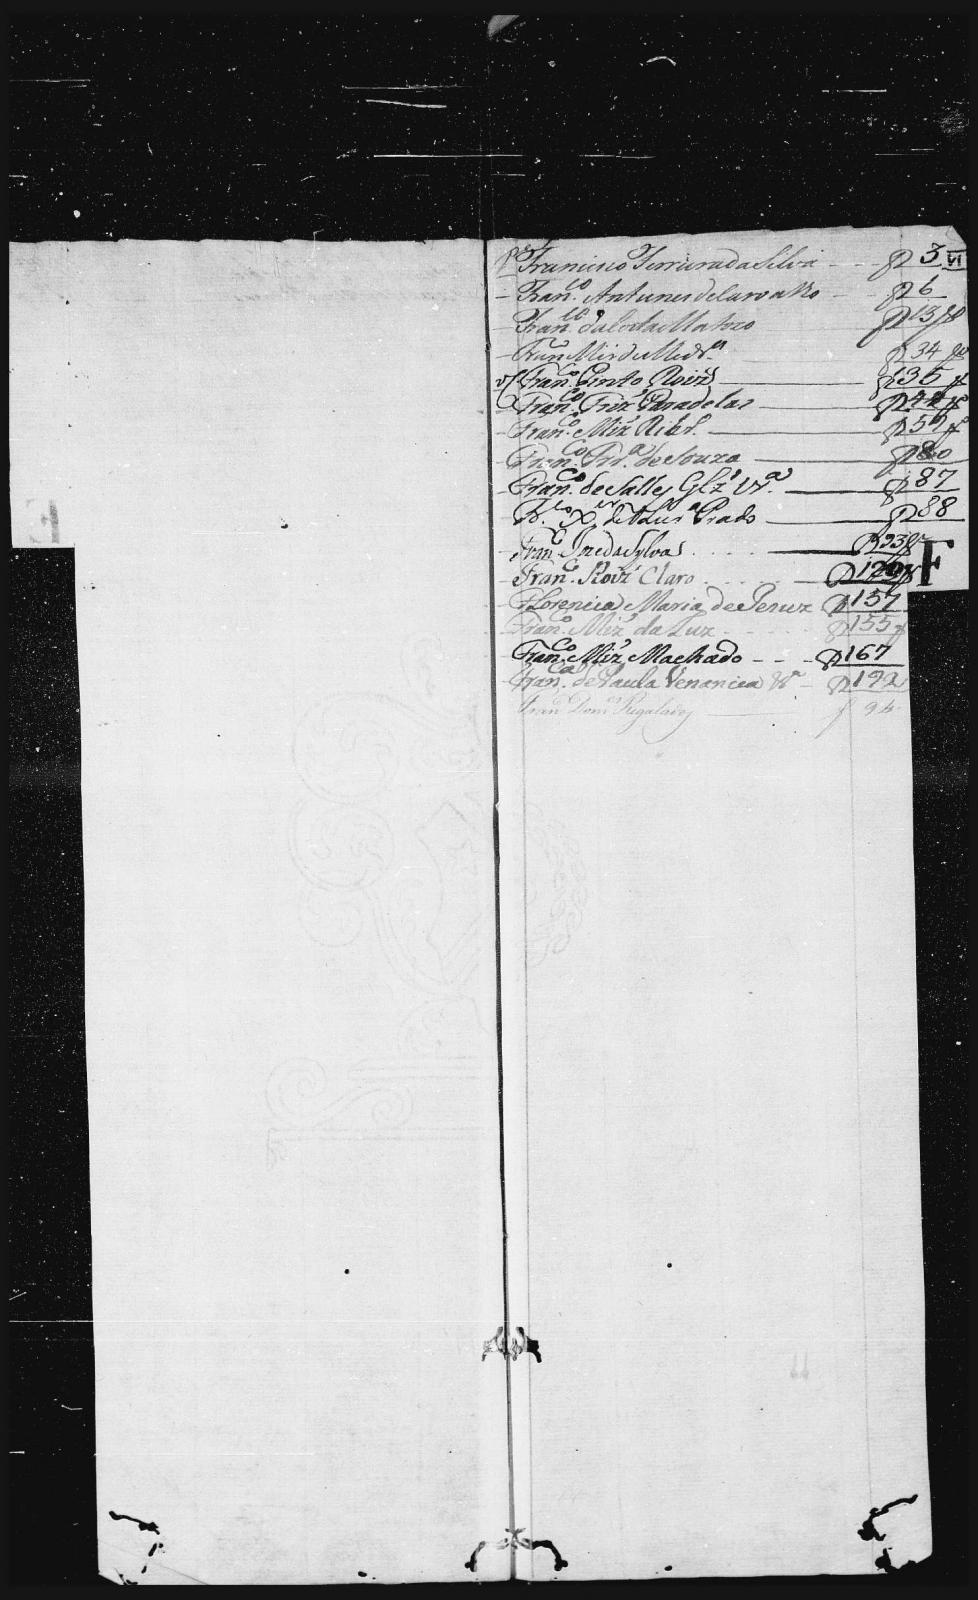 Francisco Ferreira da Silva f 3 VI
Fran.co Antunes de Carvalho f 6
Fran.co da Costa Mattozo f 13
Fran.co Miz de Med.a f 34
Fran.co Pinto Roiz f 35
Fran.co Friz Paradelas f 44
Fran.co Miz Ribr.o f 57
Fran.co Frr.a de Souza f 80
Fran.co de Salles Glz Vr.a f 87
Fr.co X.er de Prado f 88
Fran.co da Sylva f 93
Fran.co Roiz Claro f 129
Florencia Maria de Jesuz f 157
Fran.co Miz da Luz f 155
Fran.co Miz Machado f 167
Fran.ca de Paula Venancia f 192
Fran.co Dom.s Rigalados f 94
F